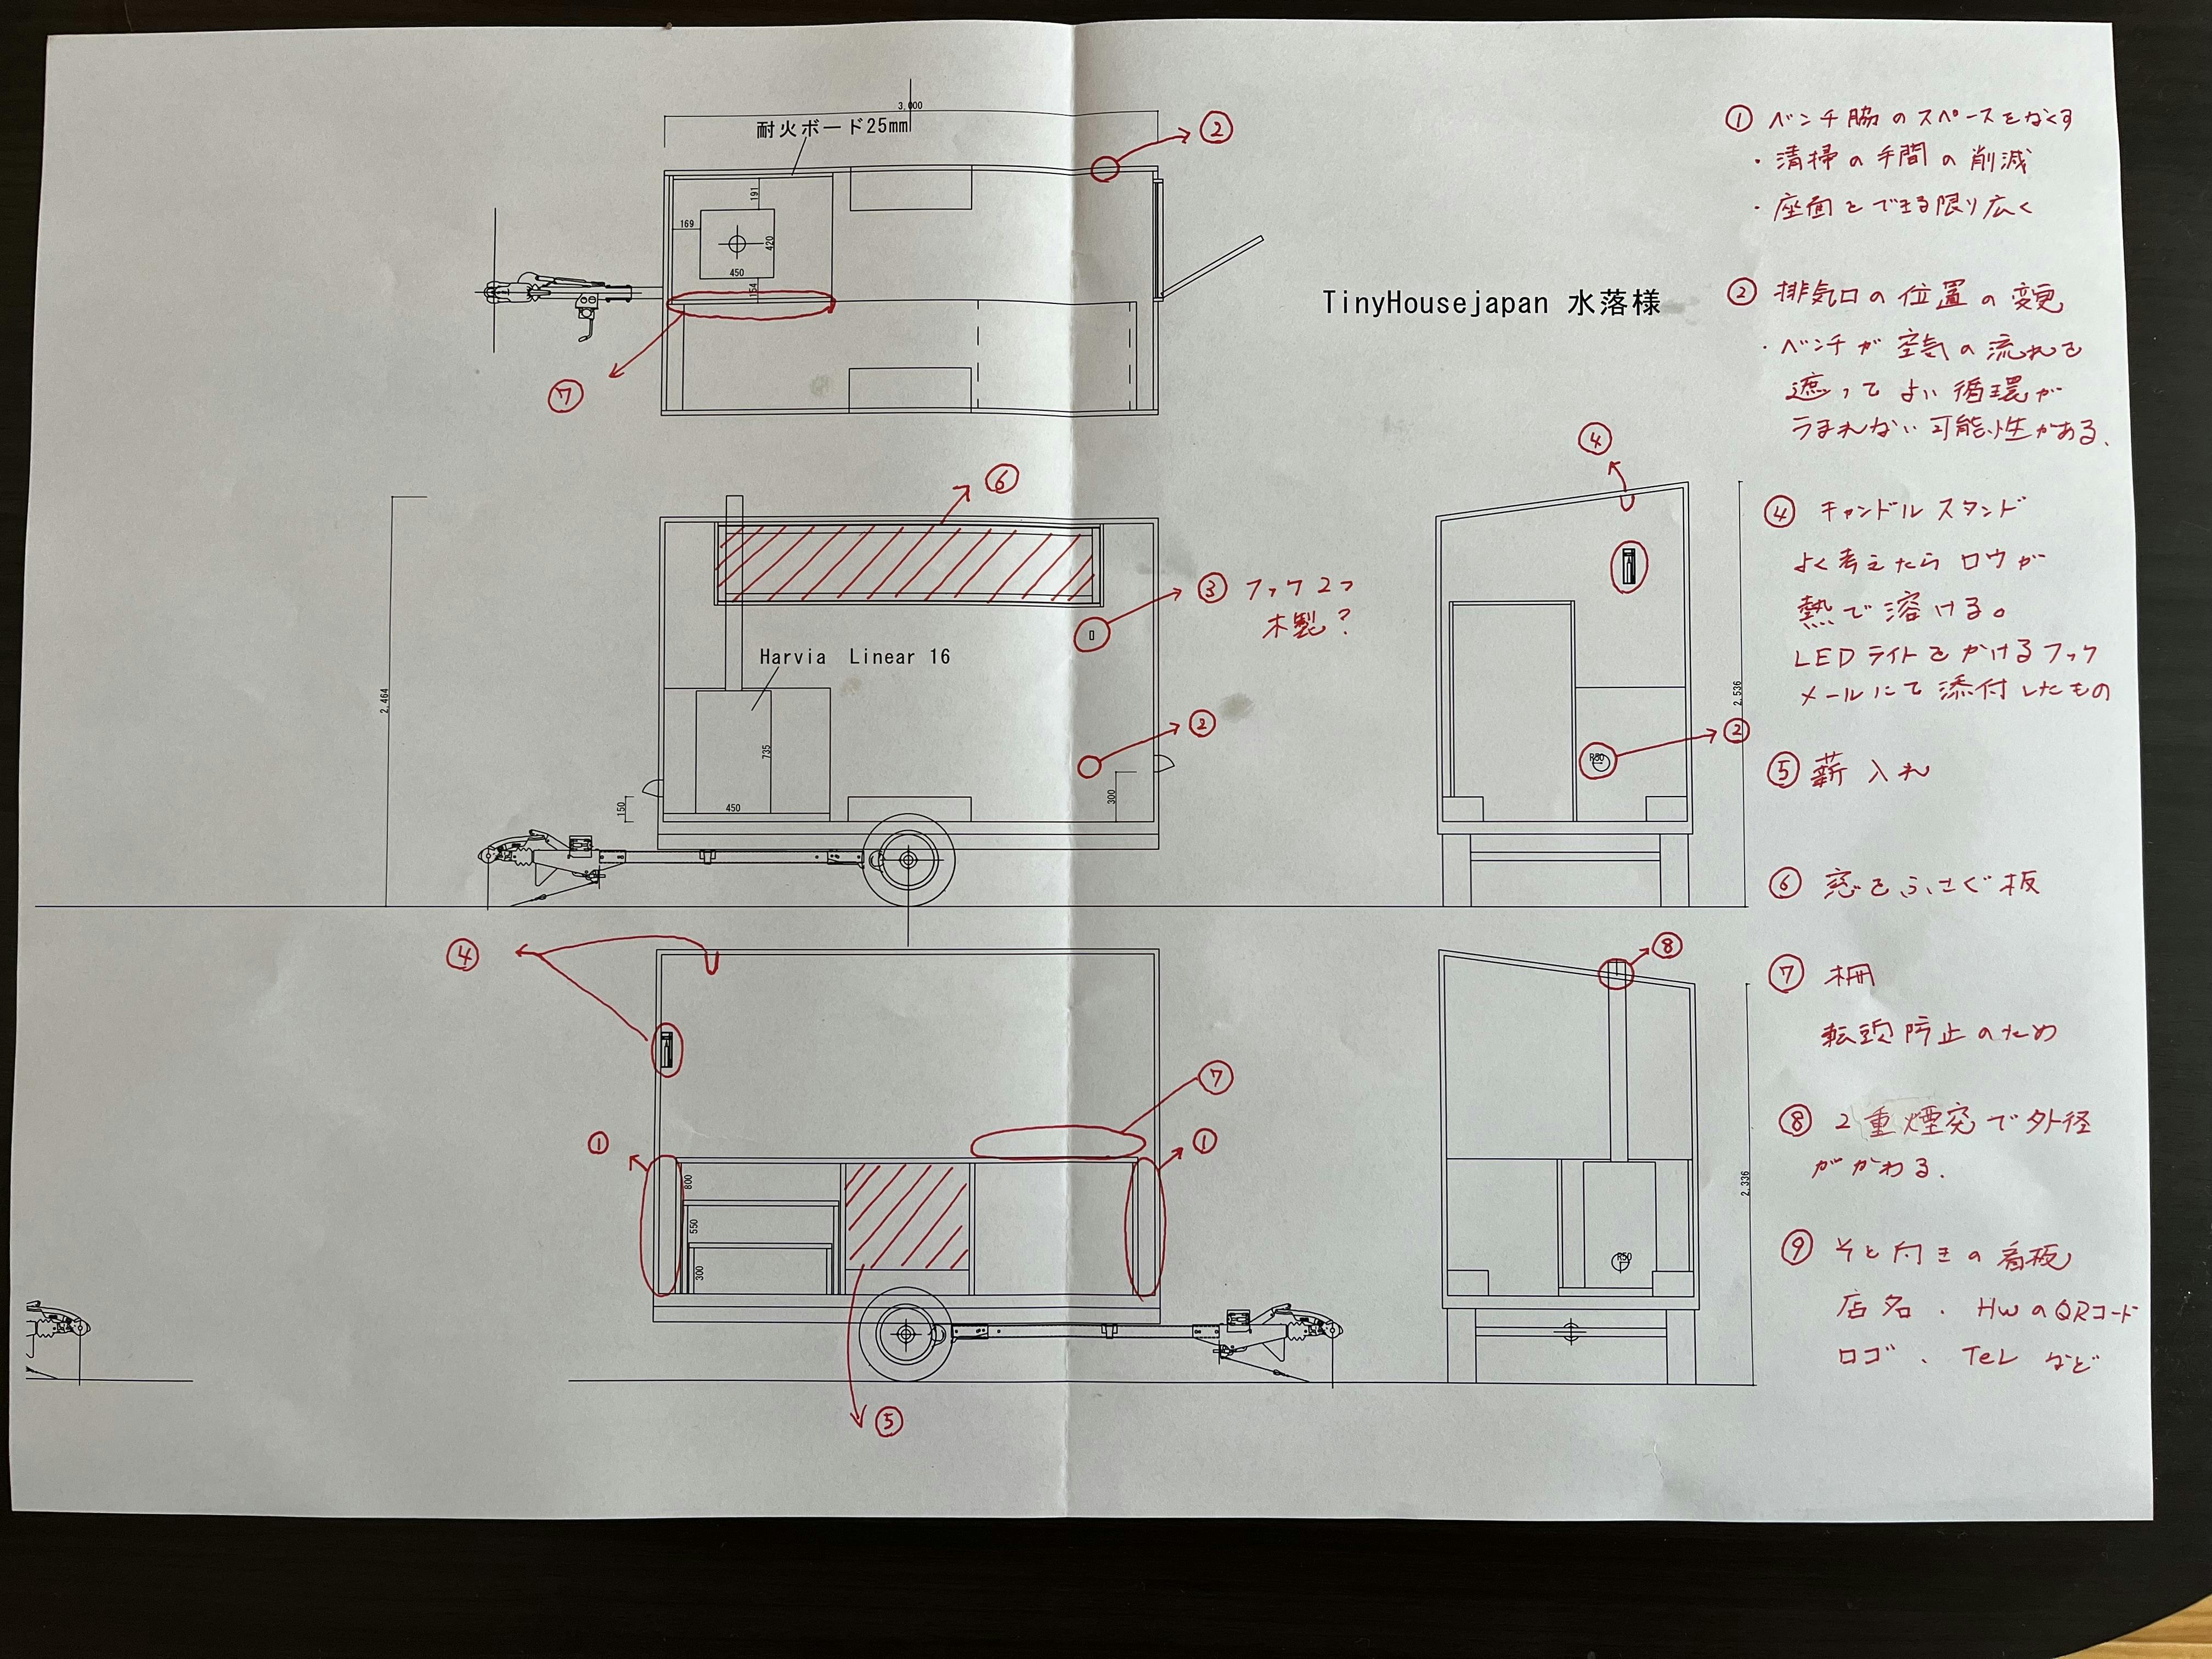 3,000
耐火ボード25mm
②
191
169
420
450
154
⑦
TinyHousejapan 水落様
① ベンチ脇のスペースをなくす
・清掃の手間の削減
・座面をできる限り広く
② 排気口の位置の変更
・ベンチが空気の流れを
遮ってよい循環が
うまれない可能性がある.
⑥
④
③ フック2つ
木製?
Harvia Linear 16
2,464
735
450
150
②
300
2,536
R50
②
④ キャンドルスタンド
よく考えたらロウが
熱で溶ける。
LEDライトをかけるフック
メールにて添付したもの
⑤ 薪入れ
⑥ 窓をふさぐ板
④
⑧
⑦
①
①
800
550
300
2,336
R50
⑤
⑦ 柵
転頭防止のため
⑧ 2重煙突で外径
がかわる.
⑨ そと付きの看板
店名、HwのQRコード
ロゴ、TeL など